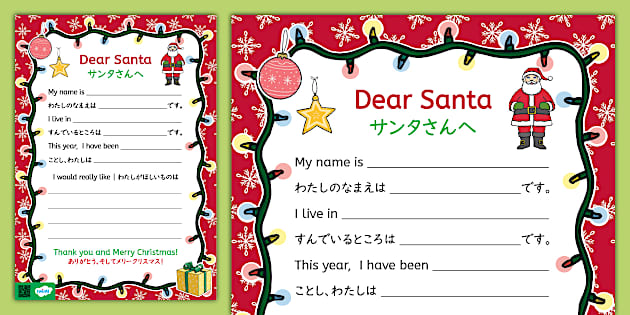 Dear Santa
サンタさんへ
My name is
わたしのなまえは です。
I live in
すんでいるところは です。
This year, I have been
ことし、わたしは
I would really like | わたしがほしいものは
Thank you and Merry Christmas!
ありがとう、そしてメリークリスマス!
twinkl
Dear Santa
サンタさんへ
My name is
わたしのなまえは です。
I live in
すんでいるところは です。
This year, I have been
ことし、わたしは